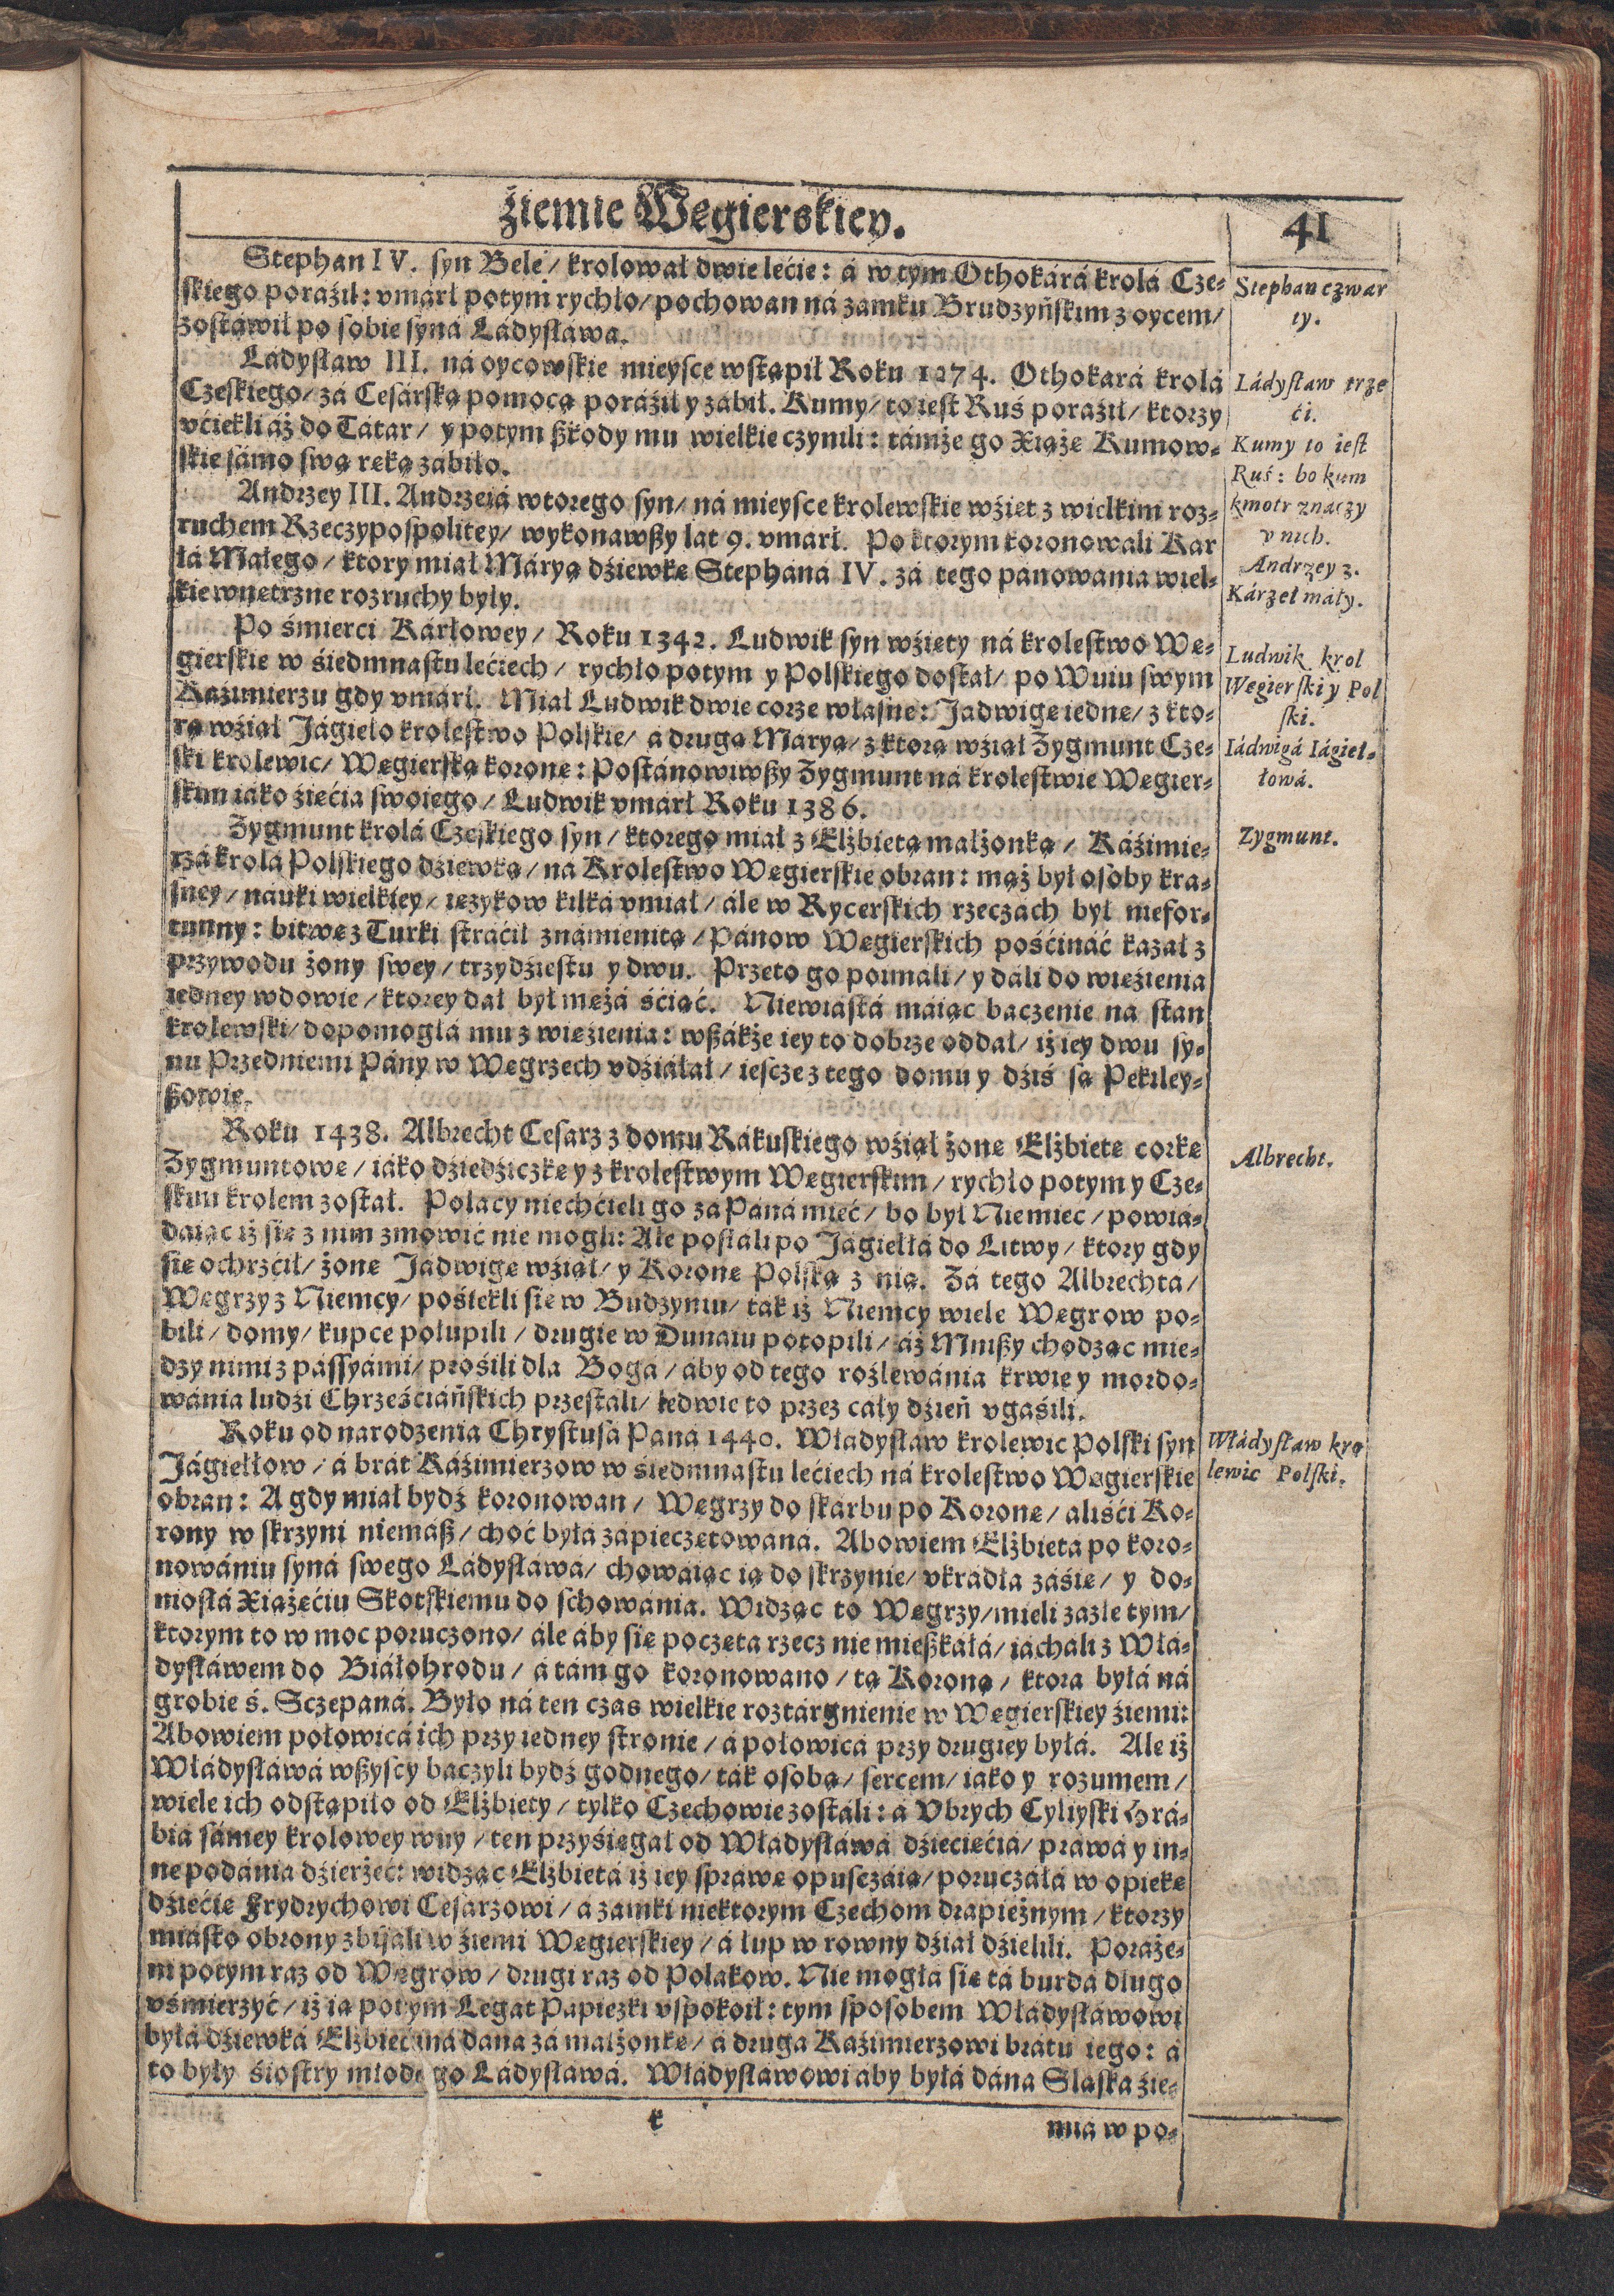 źiemie Węgierskiey.
41
Stephan IV. syn Bele / krolował dwie lećie: á w tym Othokárá krolá Cze-
skiego poraźił: vmárł potym rychło / pochowan ná zamku Brudzyńskim z oycem /
zostáwił po sobie syná Ládysłáwa.
Ládysław III. ná oycowskie mieysce wstąpił Roku 1274. Othokará krolá
Czeskiego / zá Cesárską pomocą poráźił y zábił. Kumy / to iest Ruś poráźił / ktorzy
vćiekli áż do Tátar / y potym ßkody mu wielkie czynili: támże go Xiąże Kumow-
skie sámo swą ręką zábiło.
Andrzey III. Andrzeiá wtorego syn / ná mieysce krolewskie wźięt z wielkim roz-
ruchem Rzeczypospolitey / wykonawßy lat 9. vmarł. Po ktorym koronowali Kar
łá Małego / ktory miał Máryą dźiewkę Stepháná IV. zá tego panowania wiel-
kie wnętrzne rozruchy były.
Po śmierci Kárłowey / Roku 1342. Ludwik syn wźięty ná krolestwo Wę-
gierskie w śiedmnastu lećiech / rychło potym y Polskiego dostał / po Wuiu swym
Kaźimierzu gdy vmárł. Miał Ludwik dwie corze własne: Jadwigę iednę / z kto-
rą wźiął Jágieło krolestwo Polskie / a druga Marya / z ktorą wźiął Zygmunt Cze-
ski krolewic / Węgierską koronę: Postánowiwßy Zygmunt ná krolestwie Węgier-
skim iáko źięćia swoiego / Ludwik vmarł Roku 1386.
Zygmunt krolá Czeskiego syn / ktorego miał z Elżbietą małżonką / Káźimie-
rzá krolá Polskiego dźiewką / ná Krolestwo Węgierskie obran: mąż był osoby kra-
sney / náuki wielkiey / ięzykow kilká vmiał / ále w Rycerskich rzeczach był niefor-
tunny: bitwę z Turki stráćił známienitą / Pánow Węgierskich pośćináć kazał z
przywodu żony swey / trzydźiestu y dwu. Przeto go poimali / y dali do więźienia
iedney wdowie / ktorey dał był mężá śćiąć. Niewiastá máiąc baczenie na stan
krolewski / dopomogłá mu z więźienia: wßákże iey to dobrze oddał / iż iey dwu sy-
nu Przedniemi Pány w Węgrzech vdźiáłał / iescze z tego domu y dźiś są Pekiley-
ßowie.
Roku 1438. Albrecht Cesarz z domu Rákuskiego wźiął żonę Elżbietę corkę
Zygmuntowę / iáko dźiedźiczkę y z krolestwym Węgierskim / rychło potym y Cze-
skim krolem został. Polacy niechćieli go zá Páná mieć / bo był Niemiec / powia-
dáiąc iż się z nim zmowić nie mogli: Ale posłali po Jágiełłá do Litwy / ktory gdy
się ochrzćił / żonę Jadwigę wźiął / y Koronę Polską z nią. Zá tego Albrechta /
Węgrzy z Niemcy / pośiekli się w Budzyniu / ták iż Niemcy wiele Węgrow po-
bili / domy / kupce połupili / drugie w Dunáiu potopili / áż Mnißy chodząc mię-
dzy nimi z pássyámi / prośili dla Bogá / áby od tego rozlewánia krwie y mordo-
wánia ludźi Chrześćiáńskich przestáli / ledwie to przez cáły dźień vgáśili.
Roku od narodzenia Chrystusá Páná 1440. Władysław krolewic Polski syn
Jágiełłow / á brát Káźimierzow w śiedmnastu lećiech ná krolestwo Węgierskie
obran: A gdy miał bydź koronowan / Węgrzy do skarbu po Koronę / aliśći Ko-
rony w skrzyni niemáß / choć byłá zápieczętowana. Abowiem Elżbietá po koro-
nowániu syná swego Ládysłáwá / chowáiąc ią do skrzynie / vkrádłá záśię / y do-
niosłá Xiążęćiu Skotskiemu do schowánia. Widząc to Węgrzy / mieli zá złe tym /
ktorym to w moc poruczono / ále áby się poczęta rzecz nie mießkáłá / iácháli z Włá-
dysłáwem do Białohrodu / á tám go koronowano / tą Koroną / ktora byłá ná
grobie ś. Sczepaná. Było ná ten czas wielkie roztárgnienie w Węgierskiey źiemi:
Abowiem połowicá ich przy iedney stronie / á połowicá przy drugiey byłá. Ale iż
Władysłáwá wßyscy baczyli bydź godnego / ták osobą / sercem / iáko y rozumem /
wiele ich odstąpiło od Elżbiety / tylko Czechowie zostáli: á Vbrych Cyliyski Hrá-
bia sámey krolowey wuy / ten przyśięgał od Władysłáwá dźiećięćia / práwá y in-
ne podánia dźierżeć: widząc Elżbietá iż iey spráwę opusczáią / poruczáłá w opiekę
dźiećię Frydrychowi Cesarzowi / á zamki niektorym Czechom drapieżnym / ktorzy
miásto obrony zbijáli w źiemi Węgierskiey / á łup w rowny dźiał dźielili. Poraże-
ni potym raz od Węgrow / drugi raz od Polakow. Nie mogłá się tá burdá długo
vśmierzyć / iż ią potym Legat Papiezki vspokoił: tym sposobem Władysłáwowi
byłá dźiewká Elżbiećina dána zá małżonkę / á druga Káźimierzowi brátu iego: á
to były śiostry młodego Ládysłáwá. Władysłáwowi aby byłá dána Sląska źie-
k
mia w po-
Stephan czwar
ty.
Ládysław trze
ći.
Kumy to iest
Ruś: bo kum
kmotr znaczy
v nich.
Andrzey 3.
Kárzeł máły.
Ludwik krol
Węgierski y Pol
ski.
Iádwigá Iágieł-
łowá.
Zygmunt.
Albrecht.
Władysław kro
lewic Polski.